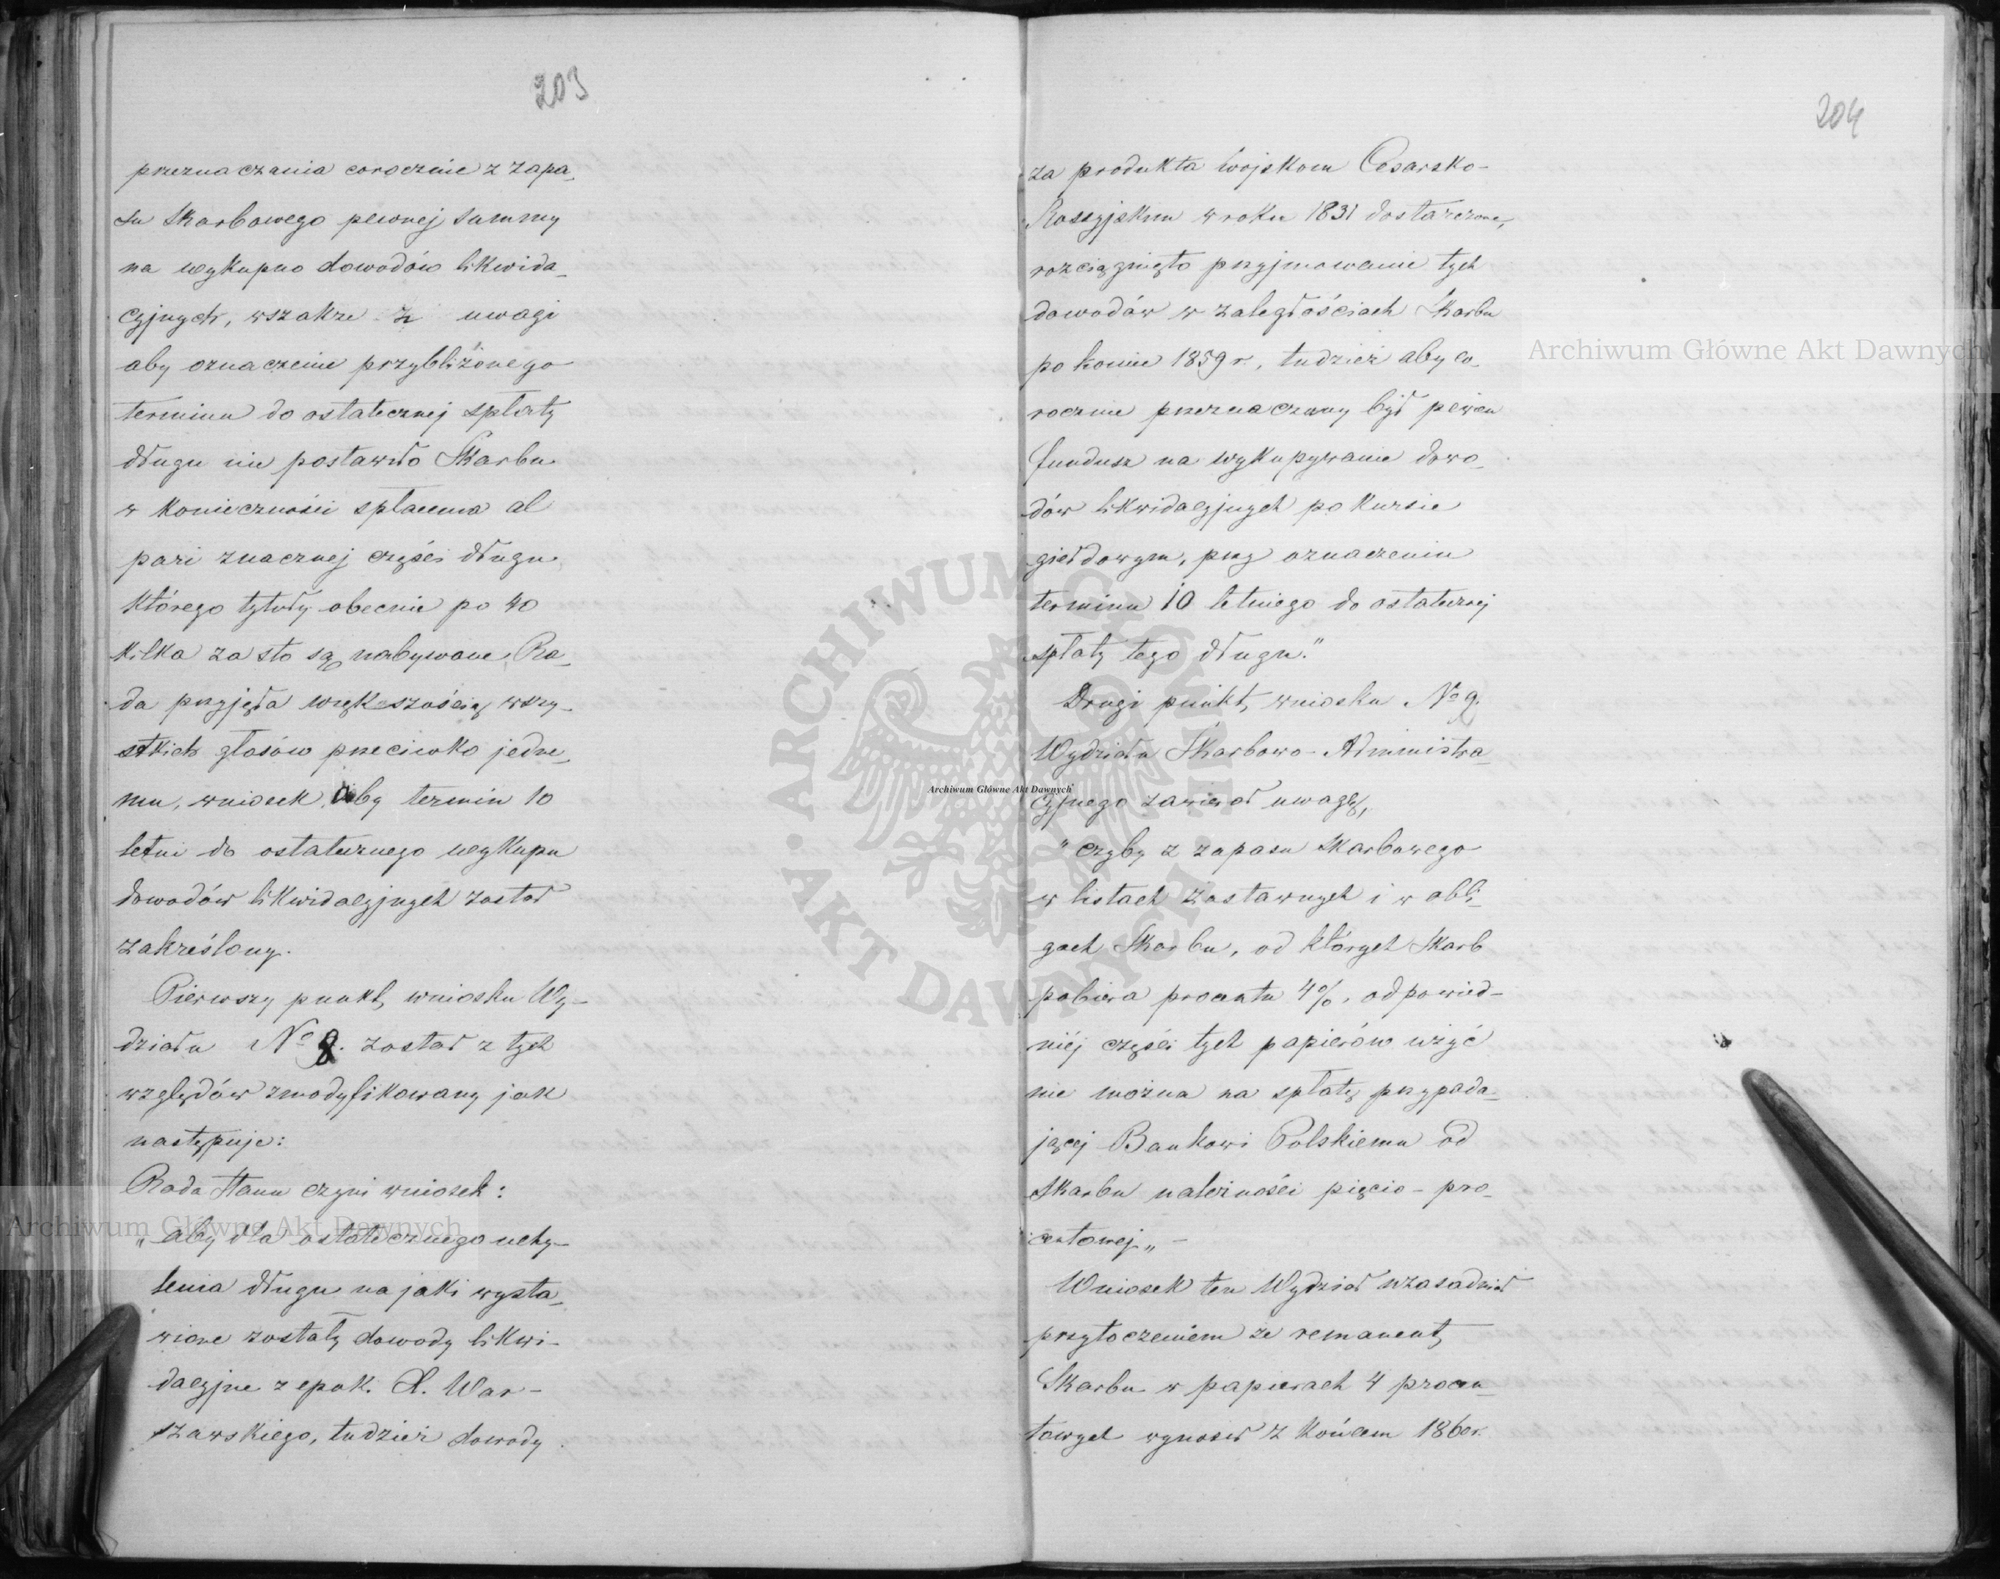 203
przeznaczania corocznie z zapa_
su Skarbowego pewnej summy
na wykupno dowodów likwida_
cyjnych, wszakże z uwagi
aby oznaczenie przybliżonego
terminu do ostatecznej spłaty
długu nie postawiło Skarbu
w konieczności spłacenia al
pari znacznej części długu
którego tytuły obecnie po 40
kilka za sto są nabywane, Ra_
da przyjęła większością wszy_
stkich głosów przeciwko jedne_
mu, wniosek aby termin 10
letni do ostatecznego wykupu
dowodów likwidacyjnych został
zakreślony.
Pierwszy punkt wniosku Wy_
działu No 9. został z tych
względów zmodyfikowany jak
następuje:
Rada Stanu czyni wniosek:
„aby dla ostatecznego uchy_
lenia długu na jaki wysta_
wione zostały dowody likwi_
dacyjne z epok. X. War_
szawskiego, tudzież dowody
204
za produkta wojskom Cesarsko-
Rossyjskim w roku 1831 dostarczone,
rozciągnięto przyjmowanie tych
dowodów w zaległościach Skarbu
po koniec 1859 r., tudzież aby co_
rocznie przeznaczany był pewien
fundusz na wykupywanie dowo_
dów likwidacyjnych po kursie
giełdowym, przy oznaczeniu
terminu 10 letniego do ostatecznej
spłaty tego długu."
Drugi punkt wniosku No 9.
Wydziału Skarbowo-Administra_
cyjnego zawierał uwagę,
"czyby z zapasu Skarbowego
w listach Zastawnych i w obli_
gach Skarbu, od których Skarb
pobiera procentu 4%, odpowied-
niéj części tych papierów użyć
nie można na spłatę przypada_
jącej Bankowi Polskiemu od
Skarbu należności pięcio-pro_
centowej„ -
Wniosek ten Wydział uzasadniał
przytoczeniem że remanent
Skarbu w papierach 4 procen_
towych wynosił z końcem 1860 r.
Archiwum Główne Akt Dawnych
Archiwum Główne Akt Dawnych
Archiwum Główne Akt Dawnych
ARCHIWUM GŁÓWNE AKT DAWNYCH